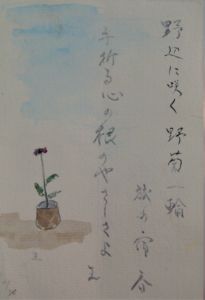 野辺に咲く野菊一輪
手折る心の根のやさしさよ
旅の宿